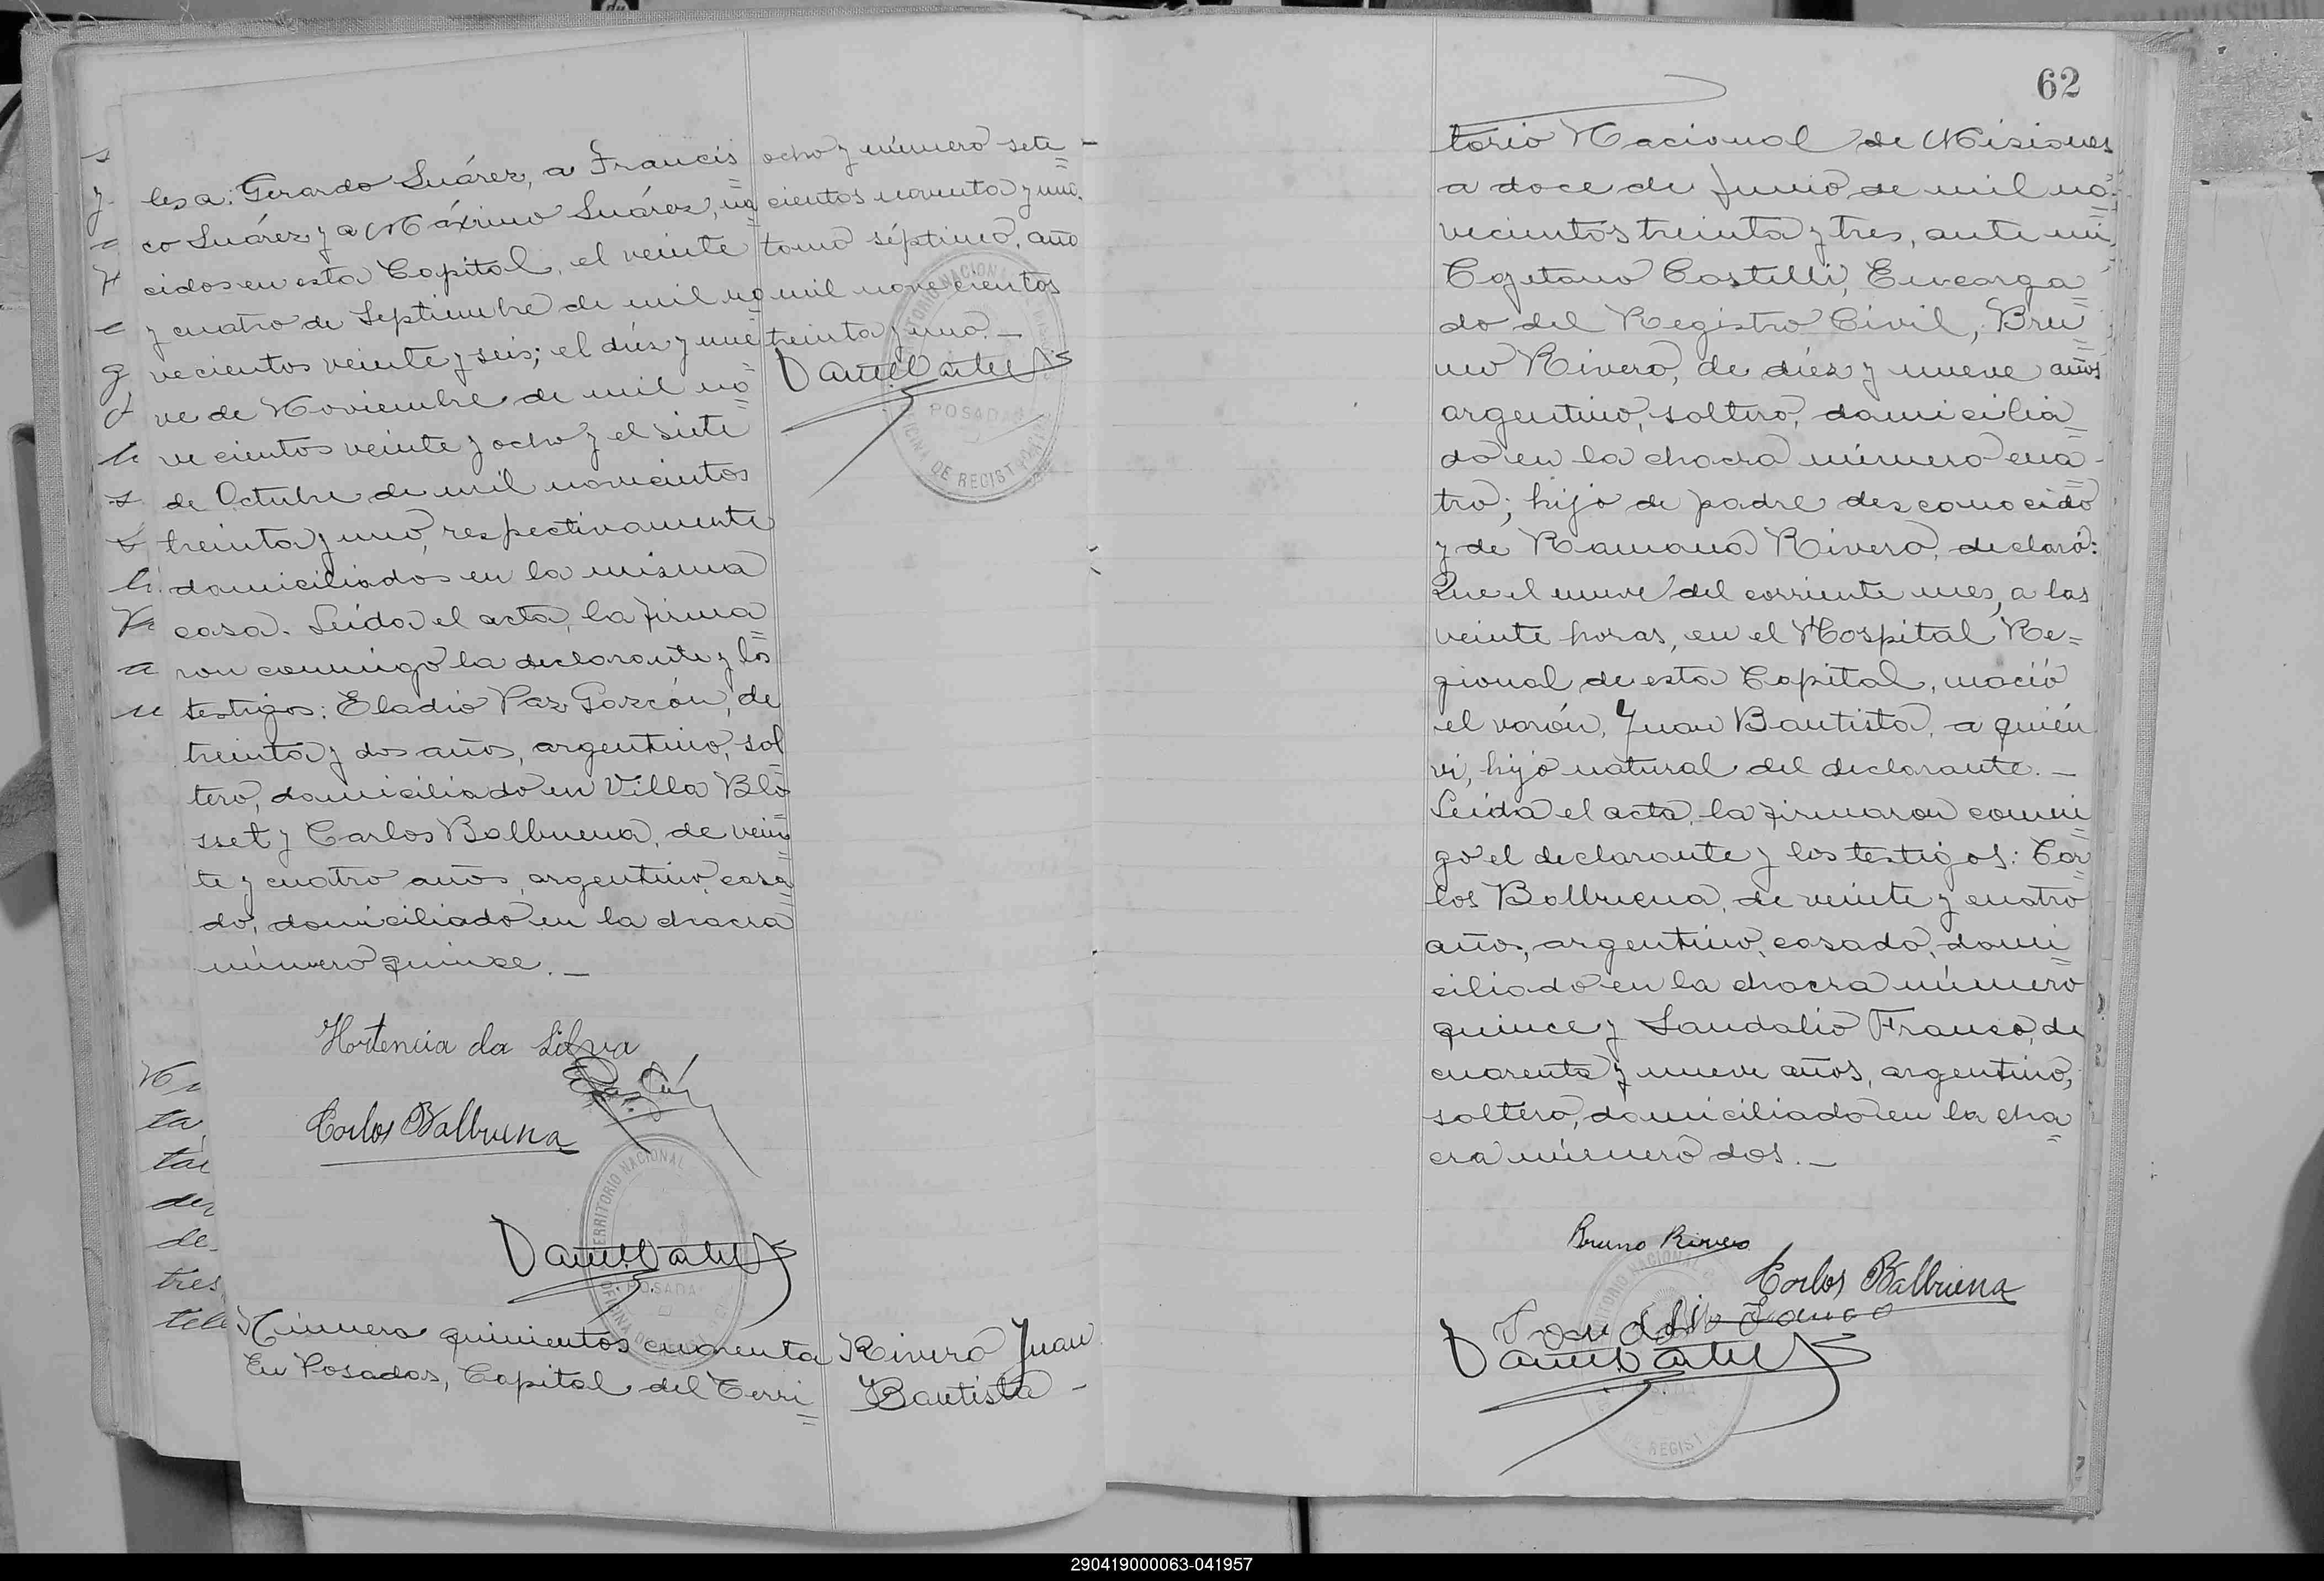 les a: Gerardo Suárez, a Francis=
co Suárez y a Máximo Suárez, na=
cidos en esta Capital, el veinte
y cuatro de Septiembre de mil no=
vecientos veinte y seis; el diéz y nue=
ve de Noviembre de mil no=
vecientos veinte y ocho y el siete
de Octubre de mil novecientos
treinta y uno, respectivamente
domiciliados en la misma
casa. Leída el acta, la firma=
ron conmigo la declarante y los
testigos: Eladio Paz Garzón, de
treinta y dos años, argentino, sol=
tero, domiciliado en Villa Blo=
sset y Carlos Balbuena, de vein=
te y cuatro años, argentino, casa=
do, domiciliado en la chacra
número quinse.—
Hortencia da Silva
Carlos Balbuena
TERRITORIO NACIONAL
POSADAS
Número quinientos cuarenta
En Posadas, Capital del Terri=
ocho y número sete=
cientos noventa y uno,
tomo séptimo, año
mil novecientos
treinta y uno.—
POSADAS
OFICINA DE REGIST
Rivero Juan
Bautista -
62
torio Nacional de Misiones
a doce de Junio de mil no=
vecientos treinta y tres, ante mí,
Cayetano Castelli, Encarga=
do del Registro Civil, Bru=
no Rivero, de diéz y nueve años
argentino, soltero, domicilia=
do en la chacra número cua=
tro; hijo de padre desconocido
y de Ramona Rivero, declaró:
Que el nueve del corriente mes, a las
veinte horas, en el Hospital Re=
gional de esta Capital, nació
el varón, Juan Bautista, a quién
vi, hijo natural del declarante.—
Leída el acta, la firmaron conmi=
go el declarante y los testigos: Car=
los Balbuena, de veinte y cuatro
años, argentino, casado, domi=
ciliado en la chacra número
quince y Sandalio Franco, de
cuarenta y nueve años, argentino,
soltero, domiciliado en la cha=
cra número dos.—
Bruno Rivero
Carlos Balbuena
Sandalio Franco
290419000063-041957